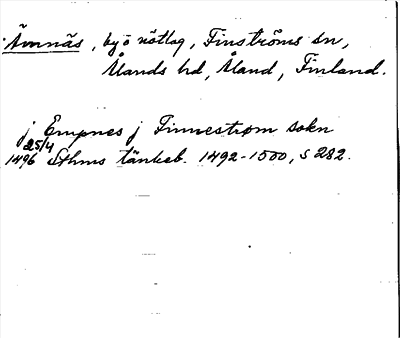 Ämnäs, by ö nötlag, Finströms sn,
Ålands hd, Åland, Finland.
j Empnes j Finnestrøm sokn
25/4
1496 Sthms tänkeb. 1492-1500, s 282.